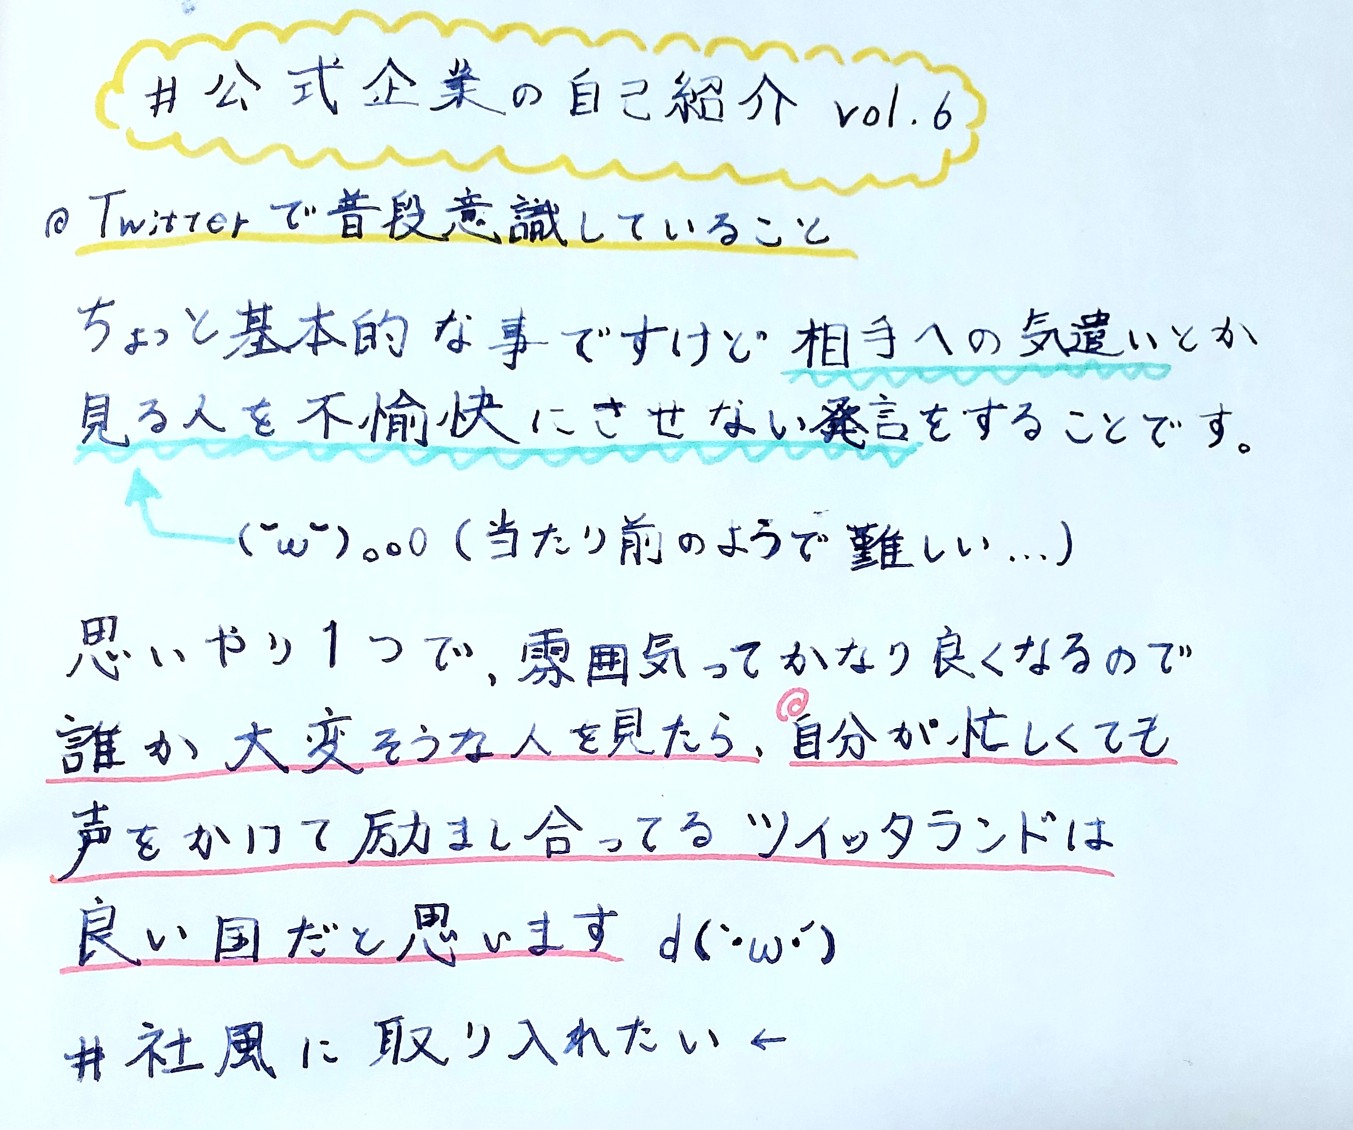 #公式企業の自己紹介 vol.6
@ Twitterで普段意識していること
ちょっと基本的な事ですけど相手への気遣いとか
見る人を不愉快にさせない発言をすることです。
(˘ω˘)｡o０(当たり前のようで難しい...)
思いやり1つで、雰囲気ってかなり良くなるので
誰か大変そうな人を見たら、@自分が忙しくても
声をかけて励まし合ってるツイッタランドは
良い国だと思います d(`･ω･´)
#社風に取り入れたい←